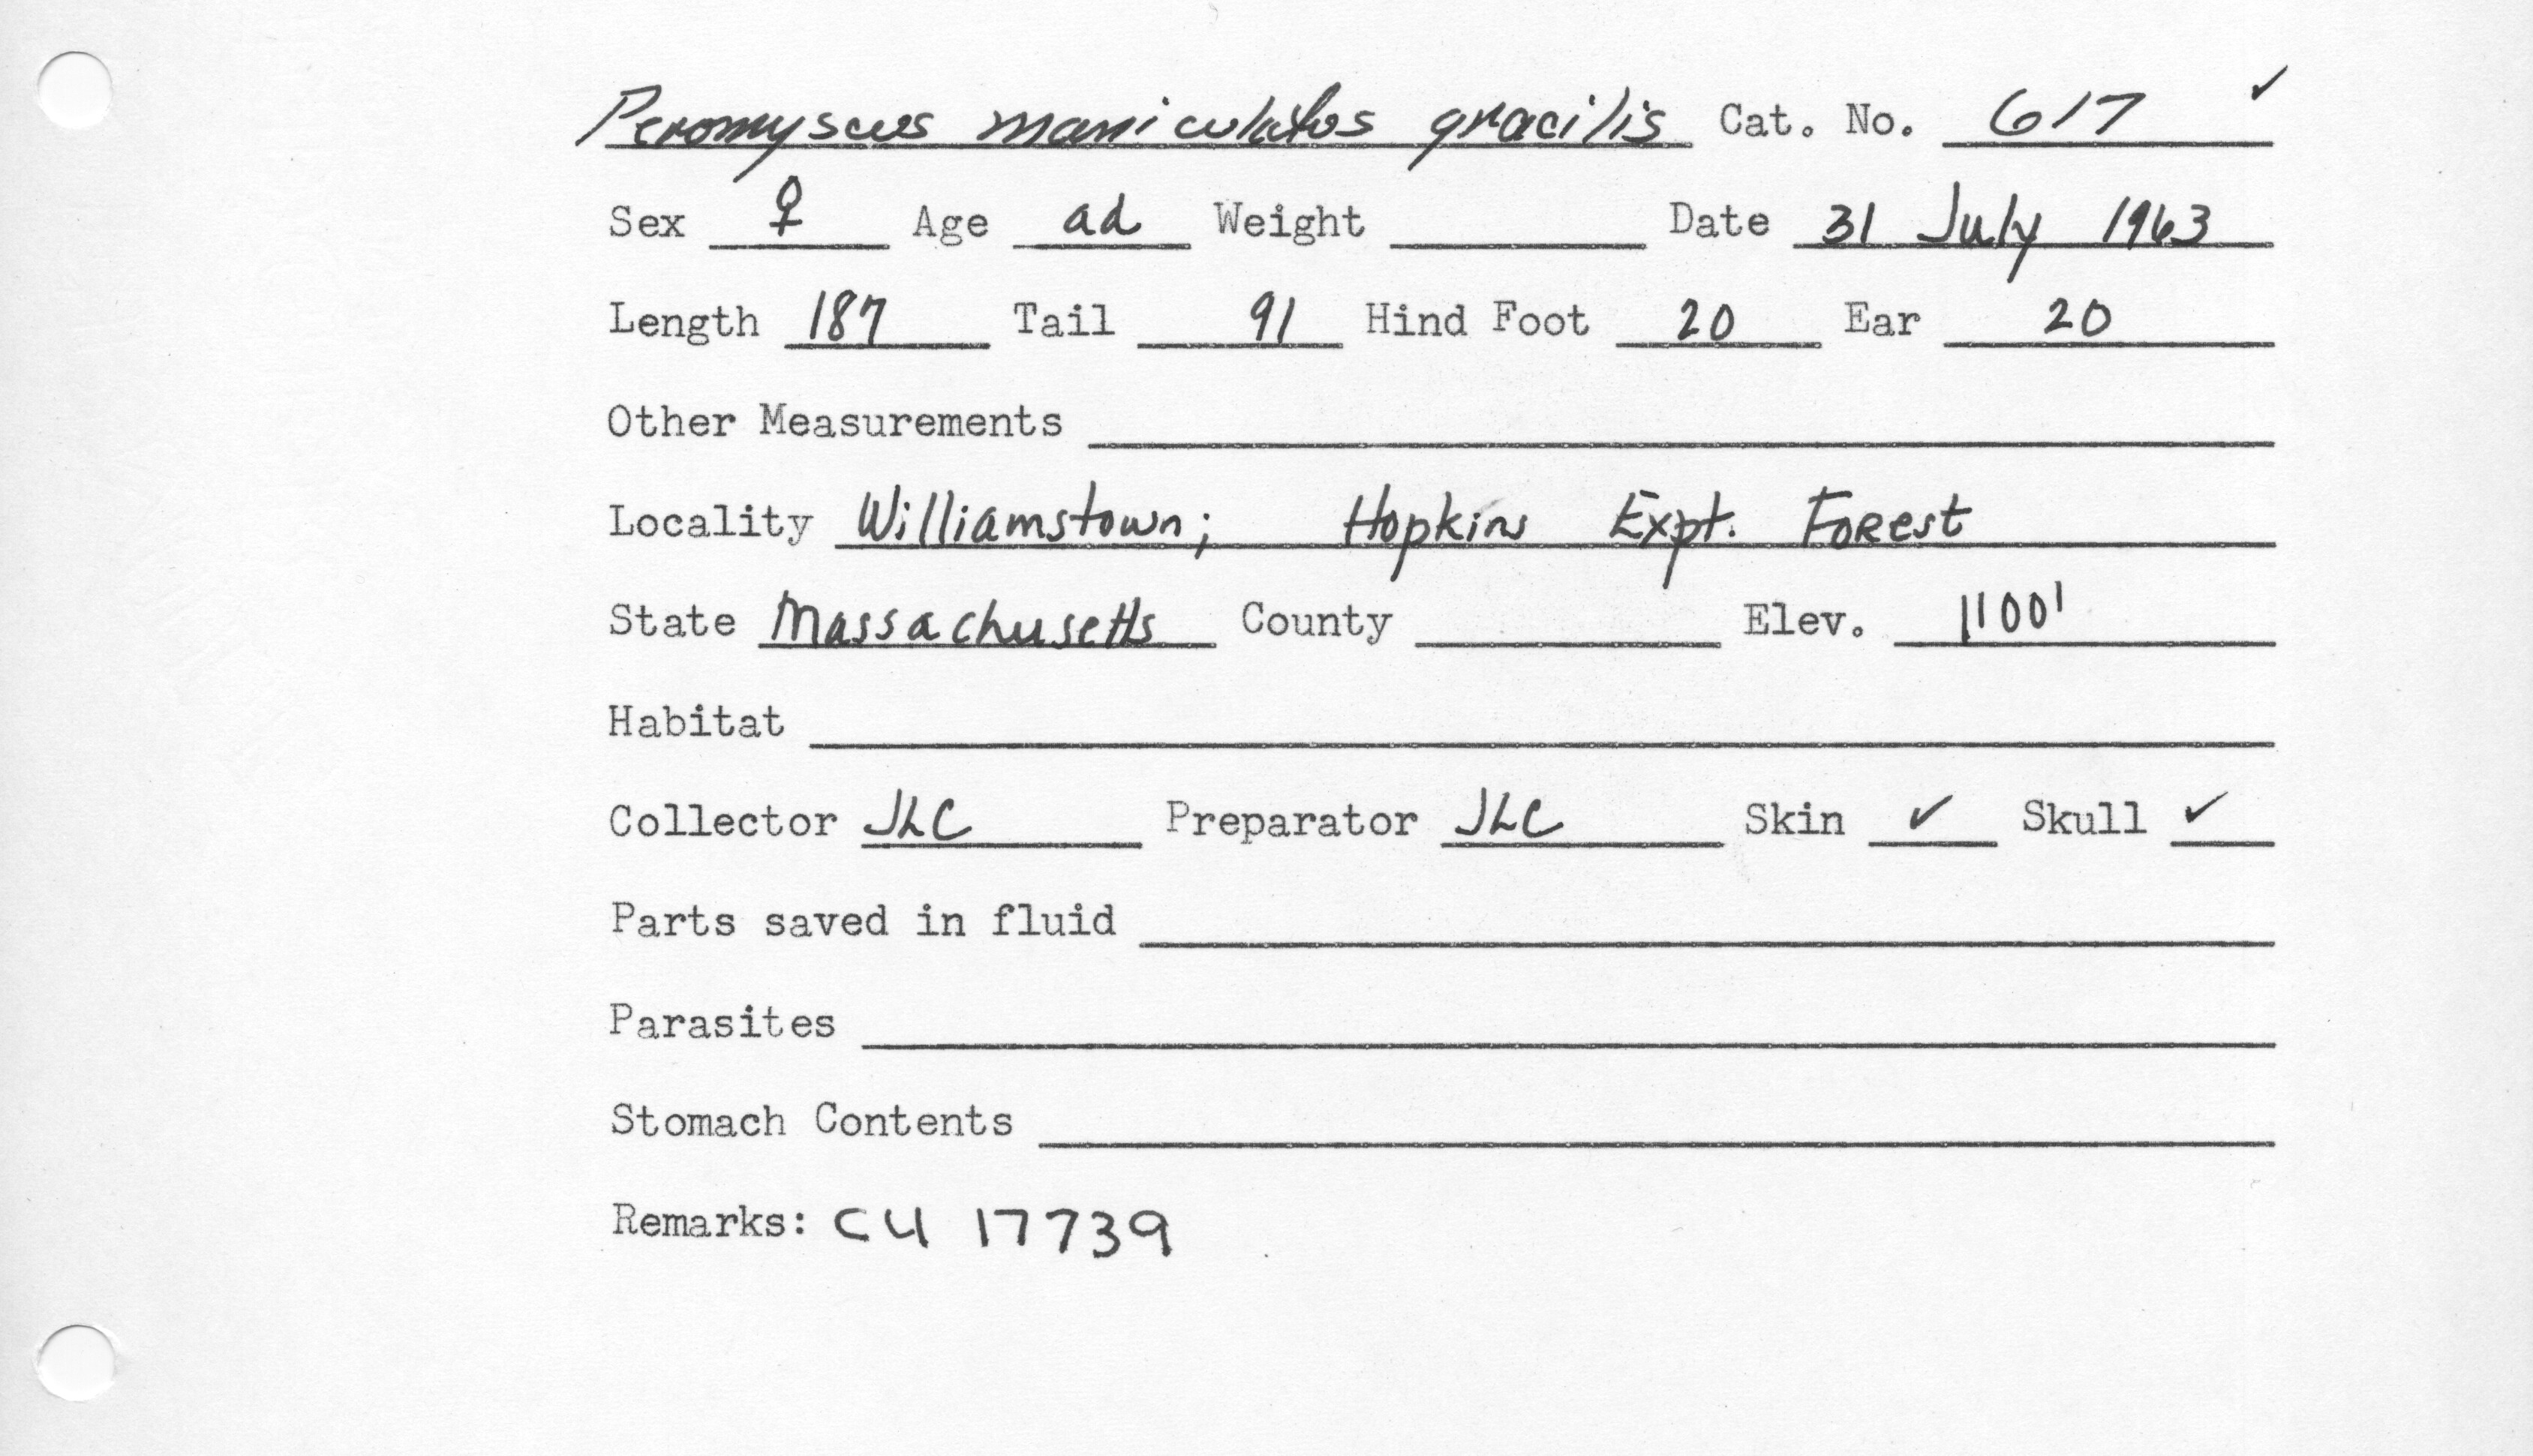 Peromyscus maniculatus gracilis Cat. No. 617 ✓
Sex ♀ Age ad Weight Date 31 July 1963
Length 187 Tail 91 Hind Foot 20 Ear 20
Other Measurements
Locality Williamstown; Hopkins Expt. Forest
State Massachusetts County Elev. 1100'
Habitat
Collector JLC Preparator JLC Skin ✓ Skull ✓
Parts saved in fluid
Parasites
Stomach Contents
Remarks: CU 17739